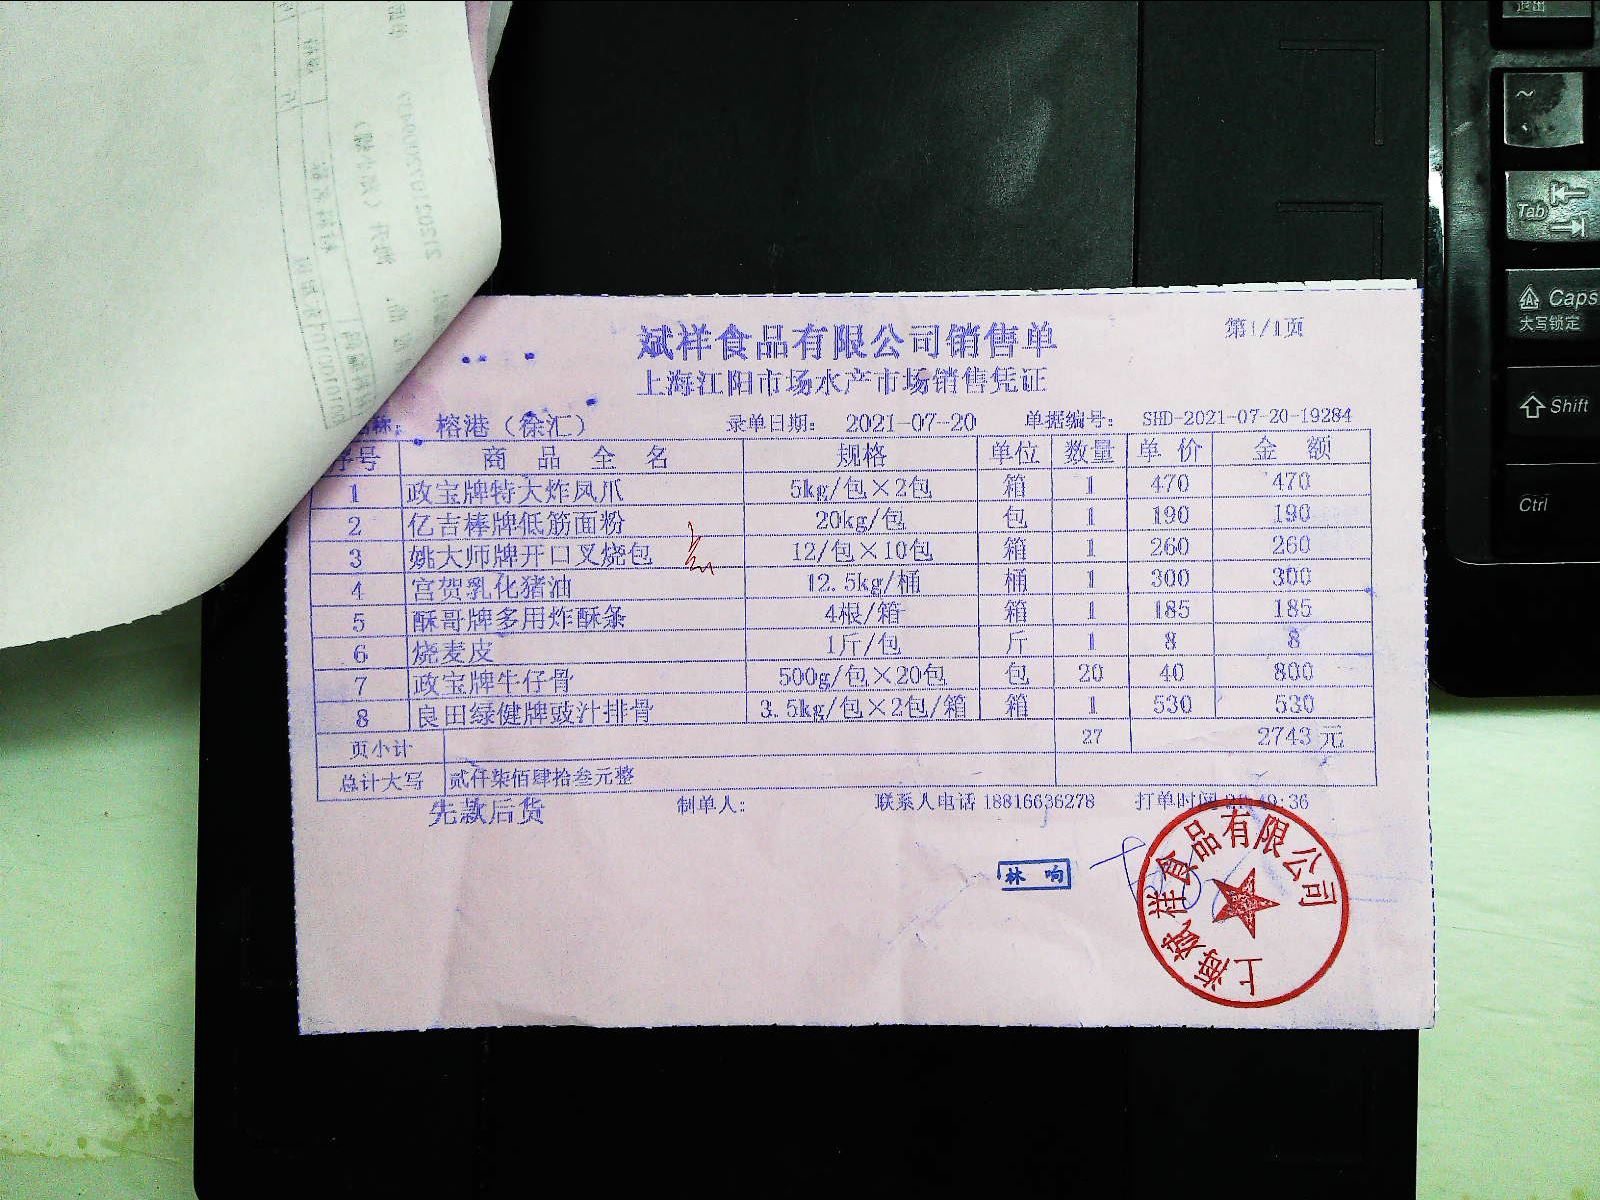 斌祥食品有限公司销售单
第1/1页
上海江阳市场水产市场销售凭证
称: 榕港（徐汇） 录单日期: 2021-07-20 单据编号: SHD-2021-07-20-19284
序号 商品全名 规格 单位 数量 单价 金额
1 政宝牌特大炸凤爪 5kg/包×2包 箱 1 470 470
2 亿吉棒牌低筋面粉 20kg/包 包 1 190 190
3 姚大师牌开口叉烧包 12/包×10包 箱 1 260 260
4 宫贺乳化猪油 12.5kg/桶 桶 1 300 300
5 酥哥牌多用炸酥条 4根/箱 箱 1 185 185
6 烧麦皮 1斤/包 斤 1 8 8
7 政宝牌牛仔骨 500g/包×20包 包 20 40 800
8 良田绿健牌豉汁排骨 3.5kg/包×2包/箱 箱 1 530 530
页小计 27 2743 元
总计大写 贰仟柒佰肆拾叁元整
先款后货 制单人: 联系人电话 18816636278 打单时间 :49:36
林 响
上海斌祥食品有限公司
退出
~
Tab
Caps
大写锁定
Shift
Ctrl